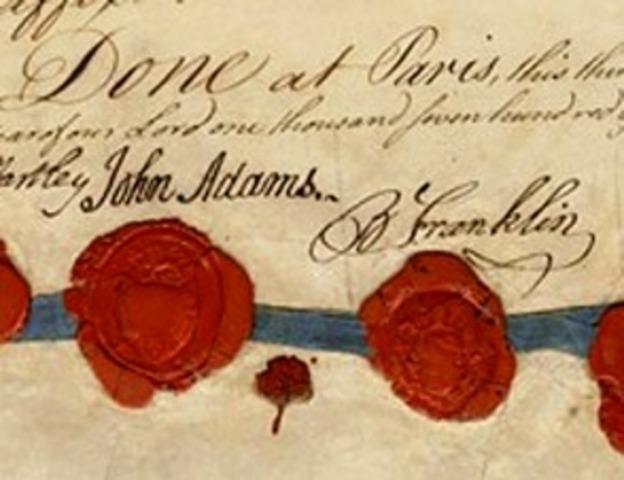 Done at Paris, this
of our Lord one thousand seven hundred
Hartley John Adams.
B Franklin